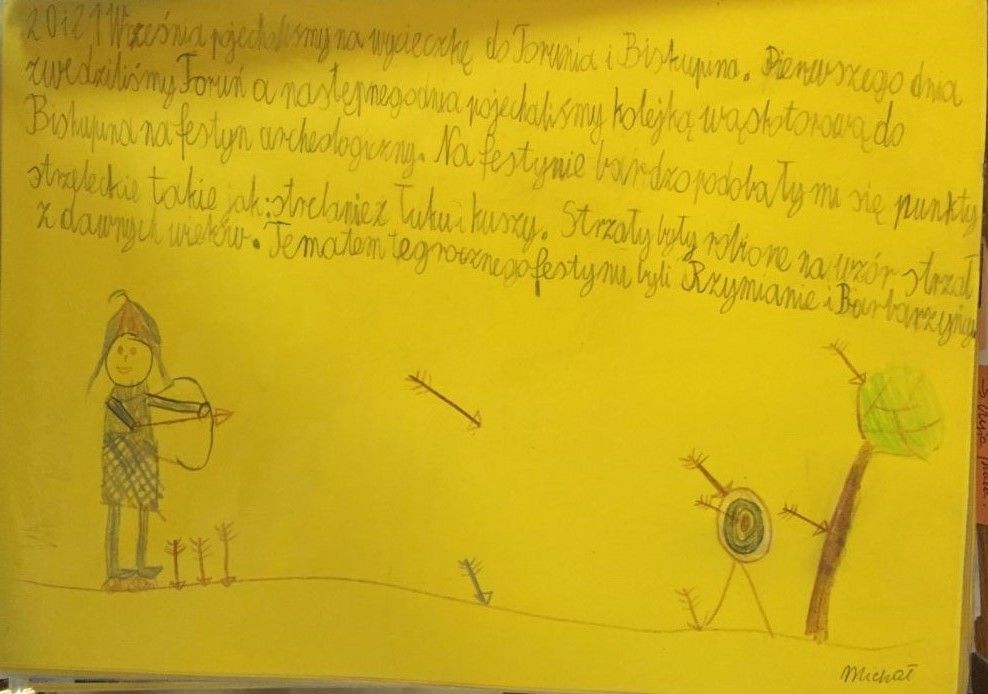 20 i 21 Września pojechaliśmy na wycieczkę do Torunia i Biskupina. Pierwszego dnia
zwiedziliśmy Toruń a następnego dnia pojechaliśmy kolejką wąskotorową do
Biskupina na festyn archeologiczny. Na festynie bardzo podobały mi się punkty
strzeleckie takie jak: strelanie z łuku i kuszy. Strzały były robione na wzór strzał
z dawnych wieków. Tematem tegrocznego festynu byli Rzymianie i Barbarzyńcy
Michał